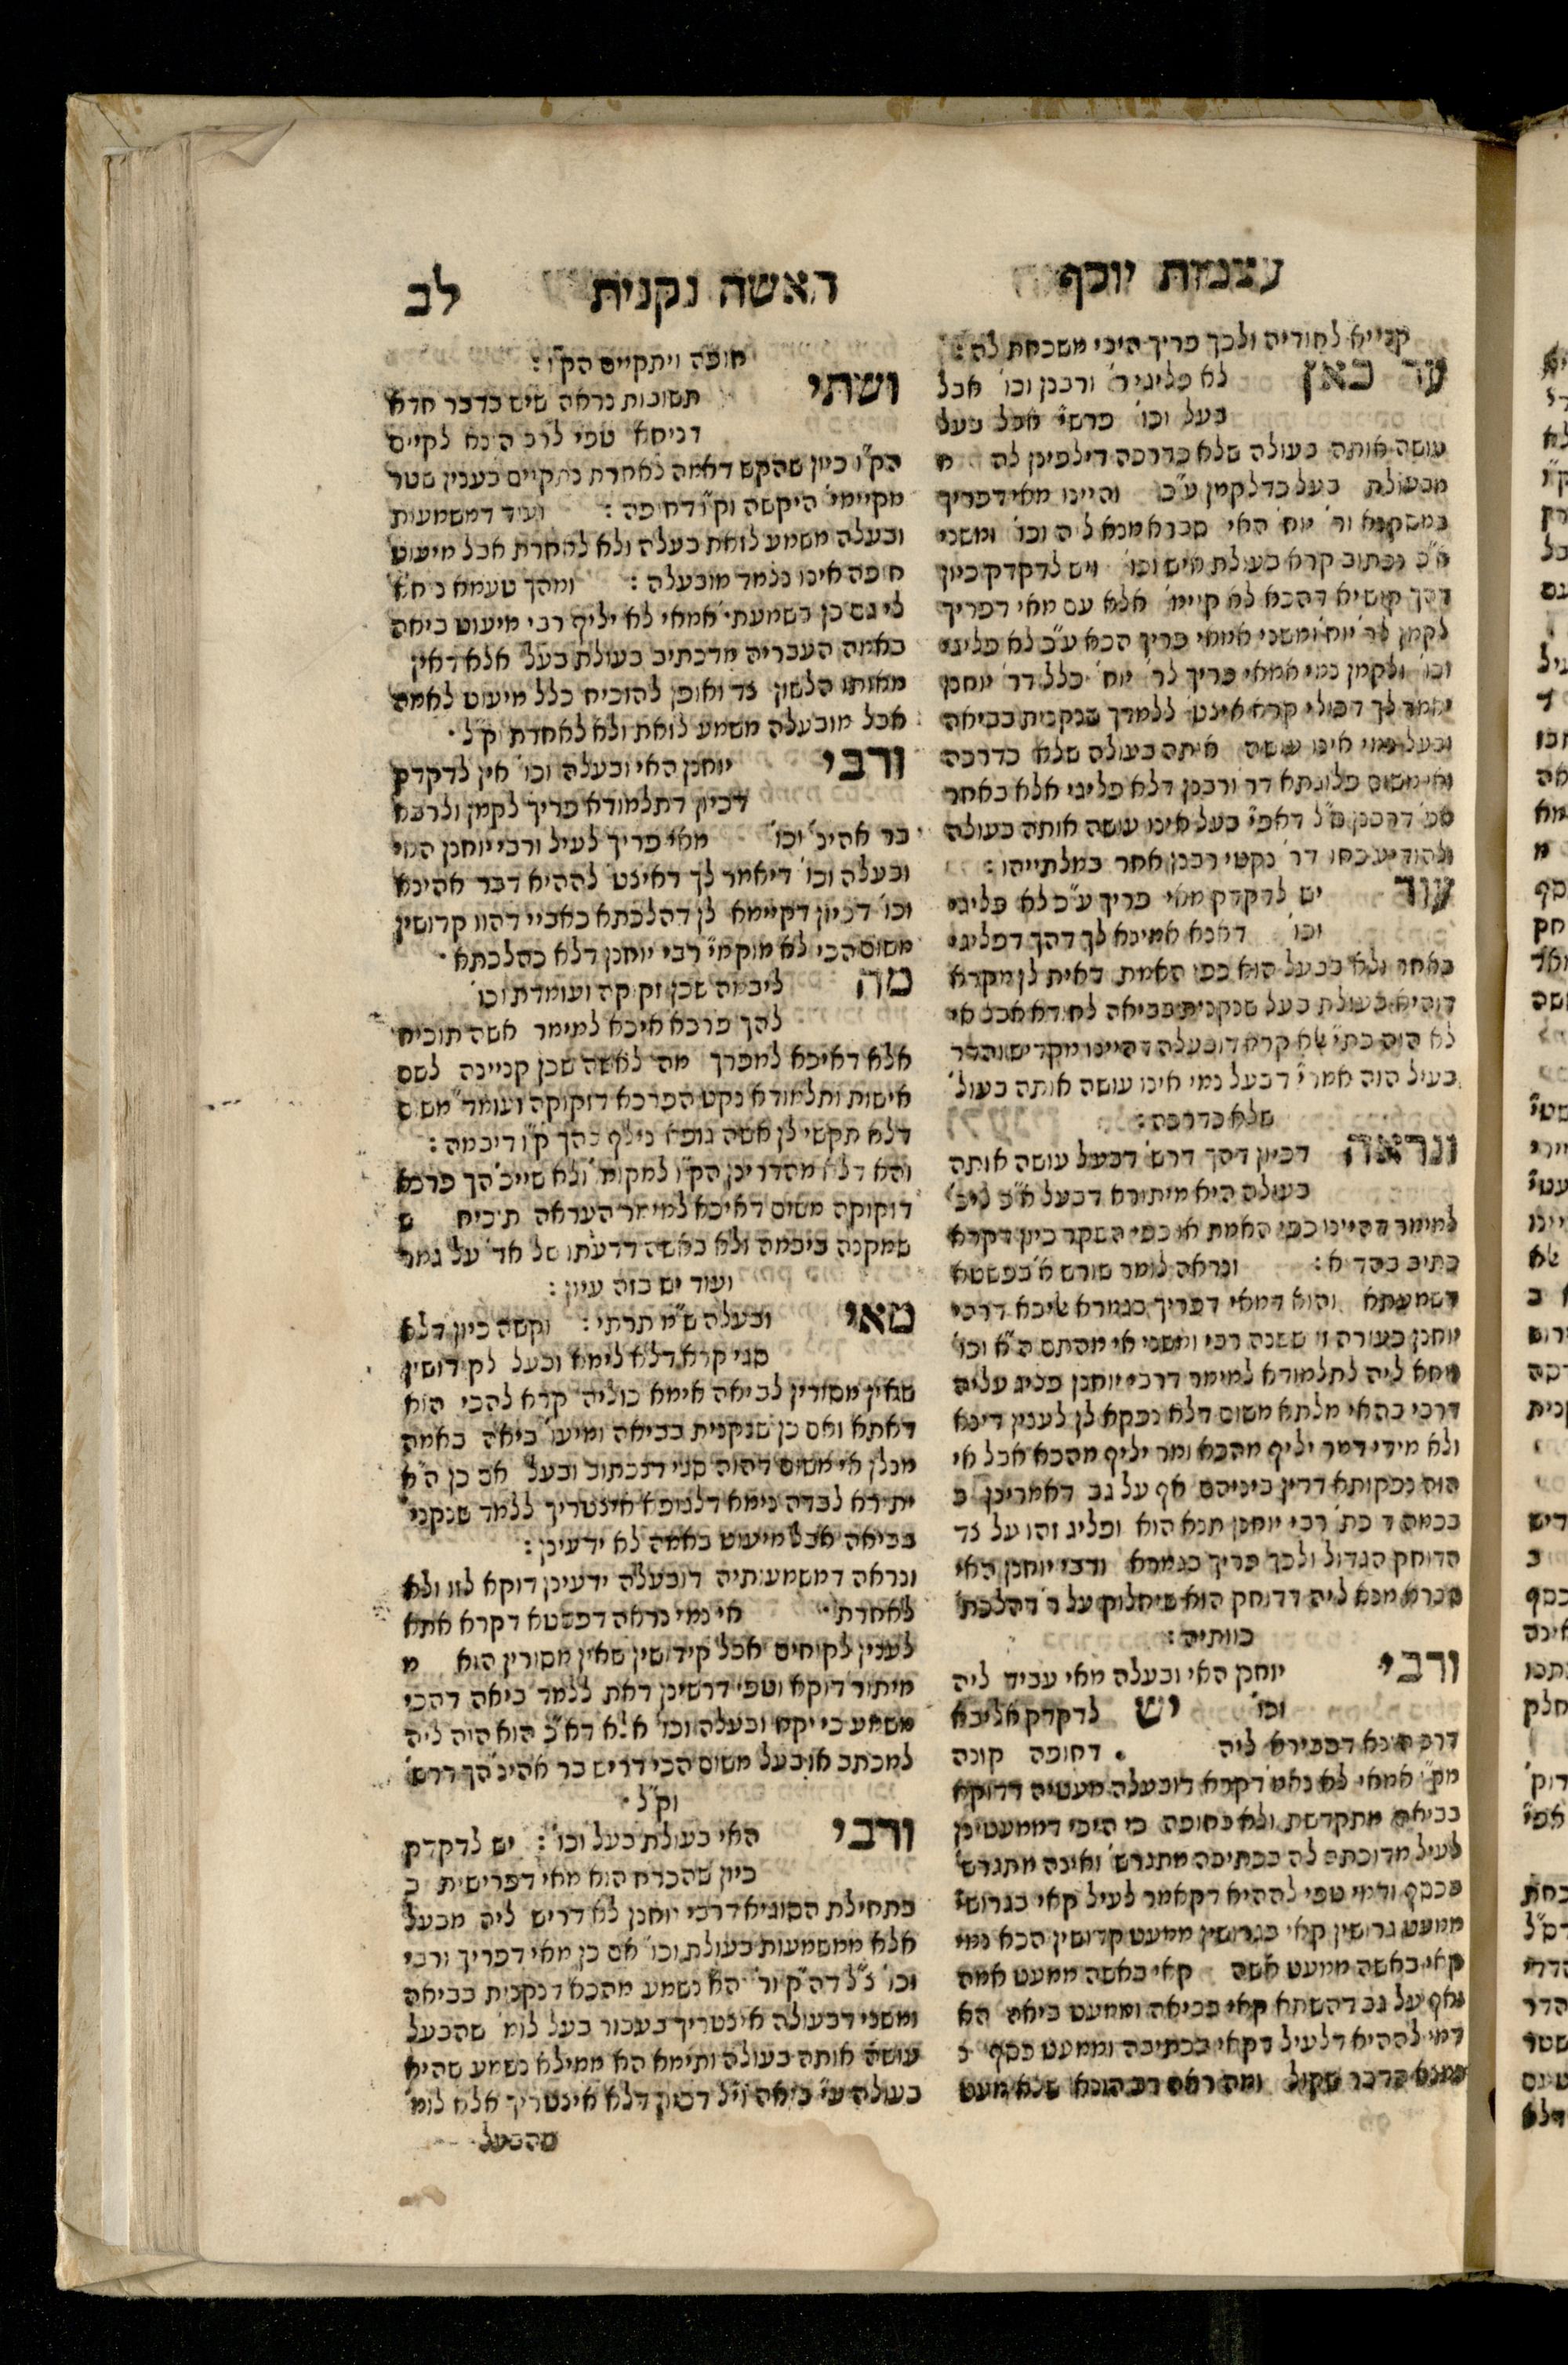 עצמות יוסף
האשה נקנית
לב
קנייא לחודיה ולכך פריך היכי משכחת לה :
עד כאן לא פליגי ר' ורבנן וכו' אבל
בעל וכו' פרש"י אבל בעל
עושה אותה בעולה שלא כדרכה דילפינן לה מ
מבעולת בעל כדלקמן ע"כ והיינו מאי דפריך
במסקנא ור' יוח' האי סברא מנא ליה וכו' ומשני
א"כ נכתוב קרא בעולת איש וכו' ויש לדקדק כיון
דהך קושיא דהכא לא קיימ' אלא עם מאי דפריך
לקמן לר' יוח' ומשני אמאי פריך הכא ע"כ לא פליגי
וכו' ולקמן נמי אמאי פריך לר' יוח' כלל דר' יוחנן
יאמר לך דכולי קרא איצט' ללמדך שנקנית בביאה
ובעל נמי אינו עושה אותה בעולה שלא כדרכה
ואי משום פלוגתא דר' ורבנן דלא פליגי אלא באחר
אפ' דרבנן ס"ל דאפי' בעל אינו עושה אותה בעולה
ולהודיע כחו דר' נקטי רבנן אחר במלתייהו :
עוד יש לדקדק מאי פריך ע"כ לא פליגי
וכו' דאנא אמינא לך דהך דפליגי
באחר ולא בבעל הוא כפי האמת דאית לן מקרא
דוהיא בעולת בעל שנקנית בביאה לחודא אבל אי
לא הוה כתי' אלא קרא דובעלה דהיינו מקדיש והדר
בעיל הוה אמרי' דבעל נמי אינו עושה אותה בעול'
שלא כדרכה :
ונראה דכיון דהך דרש' דבעל עושה אותה
בעולה היא מיתורא דבעל א"כ ליכ'
למימר דהיינו כפי האמת או כפי השקר כיון דקרא
כתיב בהדיא : ונראה לומר שורש א' בפשטא
דשמעתא והוא דמאי דפריך בגמרא אליבא דרבי
יוחנן בעורה זו ששנה רבי ומשני אי מהתם ה"א וכו'
ניחא ליה לתלמודא למימר דרבי יוחנן פליג עליה
דרבי בהאי מלתא משום דלא נפקא לן לענין דינא
ולא מידי דמר יליף מהכא ומר יליף מהכא אבל אי
הוה נפקותא דדין ביניהם אף על גב דאמרינן ב
בכמה דכת' רבי יוחנן תנא הוא ופליג זהו על צד
הדוחק הגדול ולכך פריך בגמרא ורבי יוחנן האי
סברא מנא ליה דדוחק הוא שיחלוק על ר' דהלכת'
כוותיה :
ורבי יוחנן האי ובעלה מאי עביד ליה
וכו' יש לדקדק אליבא
דרב הונא דסבירא ליה . דחופה קונה
מק"ו אמאי לא נאמ' דקרא דובעלה מעטיה דדוקא
בביאה מתקדשת ולא בחופה כי היכי דממעטינן
לעיל מדוכתב לה בכתיבה מתגרש' ואינה מתגרש'
בכסף ודמי טפי לההיא דקאמר לעיל קאי בגרושי'
ממעט גרושין קאי בגרושין ממעט קדושין הכא נמי
קאי באשה ממעט אשה קאי באשה ממעט אמה
ואף על גב דהשתא קאי בביאה וממעט ביאה הא
דמי לההיא דלעיל דקאי בכתיבה וממעט כסף כ
ומה ראה רב הונא שלא מעט
חופה ויתקיים הק"ו :
ושתי תשובות נראה שיש בדבר חדא
דניחא טפי לרב הונא לקיים
הק"ו כיון שהקש דאמה לאחרת נתקיים בענין שטר
מקיימי' היקשה וק"ו דחופה : ועוד דמשמעות
ובעלה משמע לזאת בעלה ולא לאחרת אבל מיעוט
חופה אינו נלמד מובעלה : ומהך טעמא ניחא
לי גם כן בשמעתי' אמאי לא יליף רבי מיעוט ביאה
באמה העבריה מדכתיב בעולת בעל אלא דאין
מאותו הלשון צד ואופן להוכיח כלל מיעוט לאמה
אבל מובעלה משמע לזאת ולא לאחרת וק"ל .
ורבי יוחנן האי ובעלה וכו' אין לדקדק
דכיון דתלמודא פריך לקמן ולרבא
בר אהינ' וכו' מאי פריך לעיל ורבי יוחנן האי
ובעלה וכו' דיאמר לך דאיצט' לההיא דבר אהינא
וכו' דכיון דקיימא לן דהלכתא כאביי דהוו קדושין
משום הכי לא מוקמי' רבי יוחנן דלא כהלכתא .
מה ליבמה שכן זקוקה ועומדת וכו'
להך פרכא איכא למימר אשה תוכיח
אלא דאיכא למפרך מה לאשה שכן קניינה לשם
אישות ותלמודא נקט הפרכא דזקוקה ועומד' משום
דלא תקשי לן אשה גופא נילף בהך ק"ו דיבמה :
והא דלא מהדרינן הק"ו למקומ' ולא שייכ' הך פרכא
דזקוקה משום דאיכא למימר העראה תוכיח ש
שמקנה ביבמה ולא באשה דדעתו של אד' על גמר
ועוד יש בזה עיון :
מאי ובעלה ש"מ תרתי : וקשה כיון דלא
סגי קרא דלא לימא ובעל לקידושין
שאין מסורין לביאה אימא כוליה קרא להכי הוא
דאתא ואם כן שנקנית בביאה ומיעו' ביאה באמה
מנלן אי משום דהוה סגי דנכתוב ובעל אם כן ה"א
יתירא לבדה נימא דלגופא איצטריך ללמד שנקני'
בביאה אבל מיעוט באמה לא ידעינן :
ונראה דמשמעותיה דובעלה ידעינן דוקא לזו ולא
לאחרת . אי נמי נראה דפשטא דקרא אתא
לענין לקוחים אבל קידושין שאין מסורין הוא מ
מיתור דוקא וטפי דרשינן דאת' ללמד' ביאה דהכי
משמע כי יקח ובעלה וכו' אלא דא"כ הוא הוה ליה
למכתב או בעל משום הכי דריש בר אהינ' הך דרש'
וק"ל .
ורבי האי בעולת בעל וכו' : יש לדקדק
כיון שהכרח הוא מאי דפרישית כ
בתחילת הסוגיא דרבי יוחנן לא דריש ליה מבעל
אלא ממשמעות בעולת וכו' אם כן מאי דפריך ורבי
וכו' נ"ל דה"ק ור' הא נשמע מהכא דנקנית בביאה
ומשני דבעולה איצטריך בעבור בעל לומ' שהבעל
עושה אותה בעולה ותימא הא ממילא נשמע שהיא
בעולה ע"י ביאה וי"ל דסוף דלא איצטריך אלא לומ'
שהבעל